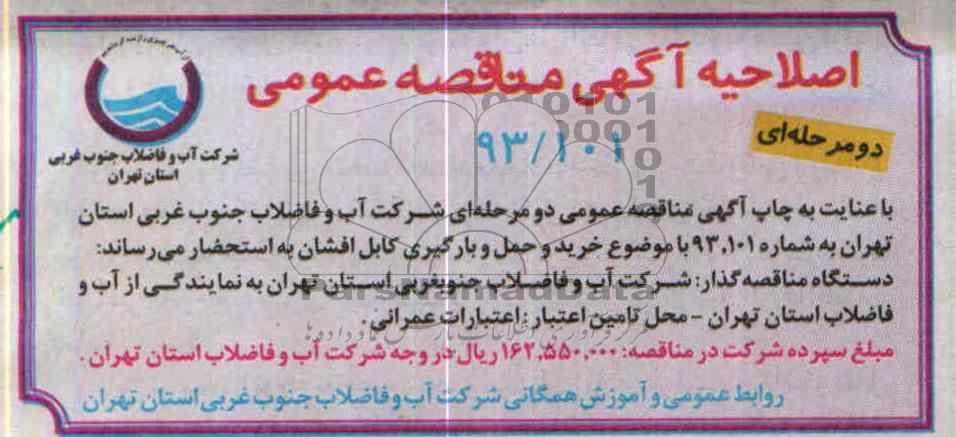 اصلاحیه آگهی مناقصه عمومی
۹۳/۱۰۱
دو مرحله‌ای
شرکت آب و فاضلاب جنوب غربی
استان تهران
با عنایت به چاپ آگهی مناقصه عمومی دو مرحله‌ای شرکت آب و فاضلاب جنوب غربی استان
تهران به شماره ۹۳,۱۰۱ با موضوع خرید و حمل و بارگیری کابل افشان به استحضار می‌رساند:
دستگاه مناقصه گذار: شرکت آب و فاضلاب جنوبغربی استان تهران به نمایندگی از آب و
فاضلاب استان تهران - محل تامین اعتبار: اعتبارات عمرانی.
مبلغ سپرده شرکت در مناقصه: ۱۶۲,۵۵۰,۰۰۰ ریال در وجه شرکت آب و فاضلاب استان تهران.
روابط عمومی و آموزش همگانی شرکت آب و فاضلاب جنوب غربی استان تهران
ParsNamadData